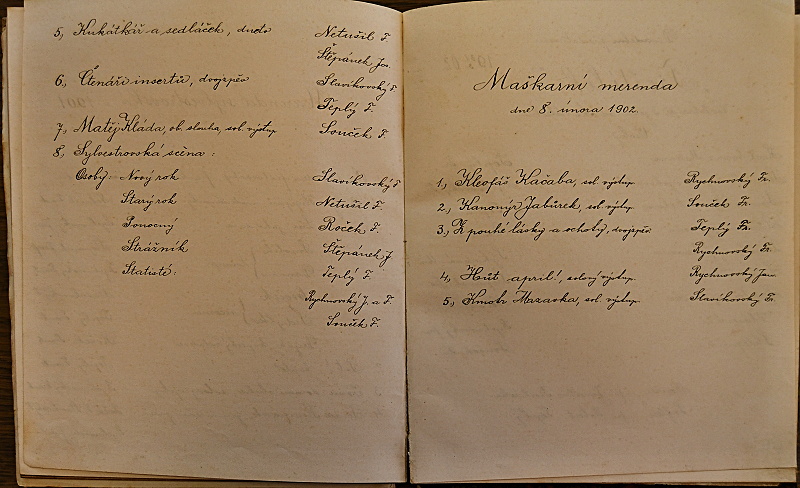 5, Kukátkář a sedláček, dueto Netušil F.
Štěpánek Jos.
6, Čtenáři insertů, dvojzpěv Slavíkovský F
Teplý F.
7, Matěj Kláda, ob. sluha, sol. výstup Souček F.
8, Sylvestrovská scéna:
Osoby: Nový rok Slavíkovský F
Starý rok Netušil F.
Ponocný Roček F.
Strážník Štěpánek J
Statisté: Teplý F.
Rychnovský J. a F.
Souček F.
Maškarní merenda
dne 8. února 1902.
1, Kleofáš Kačaba, sol. výstup Rychnovský Fr.
2, Kanonýr Jabůrek, sol. výstup Souček Fr.
3, Z pouhé lásky a ochoty, dvojzpěv Teplý Fr.
Rychnovský Fr.
4, Hut april!, solový výstup Rychnovský Jan
5, Kmotr Mazavka, sol. výstup Slavíkovský Fr.